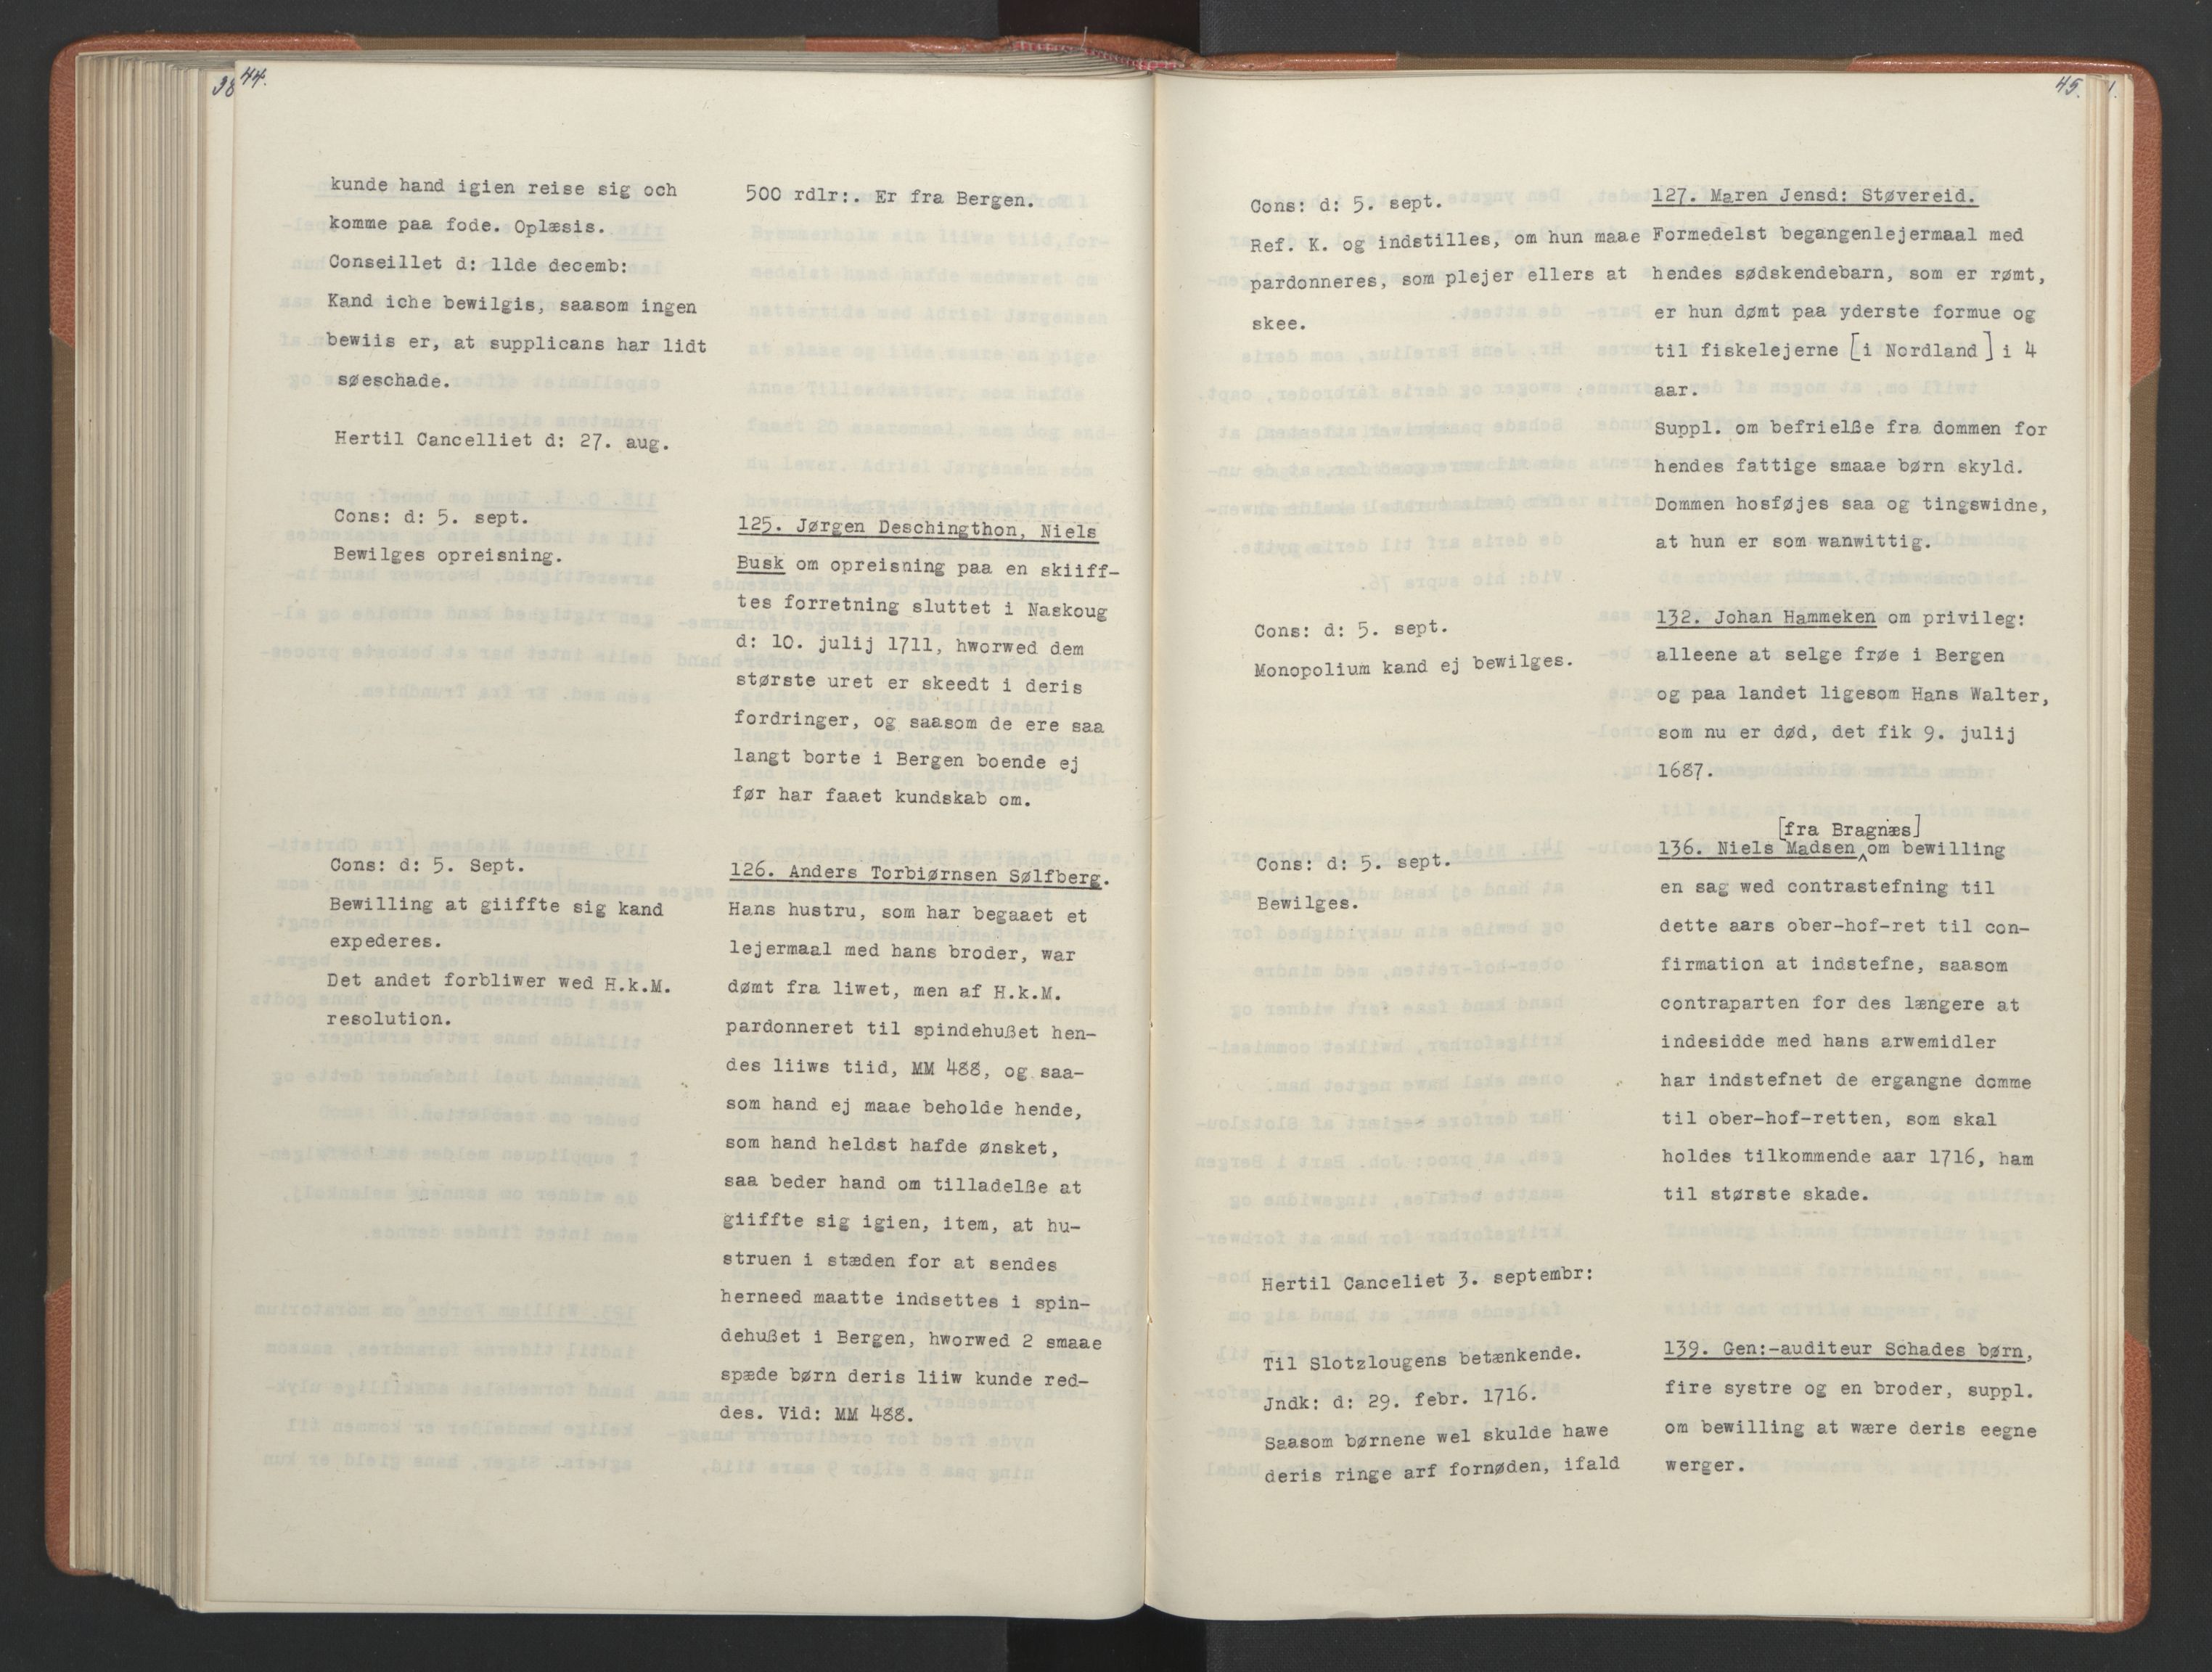 38
44.
kunde hand igien reise sig och
komme paa fode. Oplæsis.
Conseillet d: 11de decemb:
Kand iche bewilgis, saasom ingen
bewiis er, at supplicans har lidt
søeschade.
Hertil Cancelliet d: 27. aug.
Cons: d: 5. sept.
Bewilges opreisning.
Cons: d: 5. Sept.
Bewilling at giiffte sig kand
expederes.
Det andet forbliwer wed H.k.M.
resolution.
500 rdlr:. Er fra Bergen.
125. Jørgen Deschingthon, Niels
Busk om opreisning paa en skiiff-
tes forretning sluttet i Naskoug
d: 10. julij 1711, hworwed dem
største uret er skeedt i deris
fordringer, og saasom de ere saa
langt borte i Bergen boende ej
før har faaet kundskab om.
126. Anders Torbiørnsen Sølfberg.
Hans hustru, som har begaaet et
lejermaal med hans broder, war
dømt fra liwet, men af H.k.M.
pardonneret til spindehußet hen-
des liiws tiid, MM 488, og saa-
som hand ej maae beholde hende,
som hand heldst hafde ønsket,
saa beder hand om tilladelße at
giiffte sig igien, item, at hu-
struen i stæden for at sendes
herneed maatte indsettes i spin-
dehußet i Bergen, hworwed 2 smaae
spæde børn deris liiw kunde red-
des. Vid: MM 488.
45.
1.
Cons: d: 5. sept.
Ref. K. og indstilles, om hun maae
pardonneres, som plejer ellers at
skee.
Cons: d: 5. sept.
Monopolium kand ej bewilges.
Cons: d: 5. sept.
Bewilges.
Hertil Canceliet 3. septembr:
Til Slotzlougens betænkende.
Jndk: d: 29. febr. 1716.
Saasom børnene wel skulde hawe
deris ringe arf fornøden, ifald
127. Maren Jensd: Støvereid.
Formedelst begangenlejermaal med
hendes sødskendebarn, som er rømt,
er hun dømt paa yderste formue og
til fiskelejerne [i Nordland] i 4
aar.
Suppl. om befrielße fra dommen for
hendes fattige smaae børn skyld.
Dommen hosføjes saa og tingswidne,
at hun er som wanwittig.
132. Johan Hammeken om privileg:
alleene at selge frøe i Bergen
og paa landet ligesom Hans Walter,
som nu er død, det fik 9. julij
1687.
[fra Bragnæs]
136. Niels Madsen ^om bewilling
en sag wed contrastefning til
dette aars ober-hof-ret til con-
firmation at indstefne, saasom
contraparten for des længere at
indesidde med hans arwemidler
har indstefnet de ergangne domme
til ober-hof-retten, som skal
holdes tilkommende aar 1716, ham
til største skade.
139. Gen:-auditeur Schades børn,
fire systre og en broder, suppl.
om bewilling at wære deris eegne
werger.